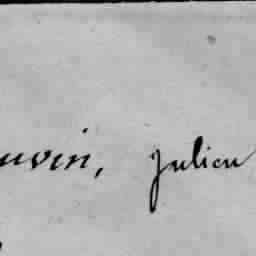 uvin, Julien